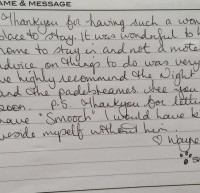 AME & MESSAGE
Thankyou for having such a won
place to stay. It was wonderful to h
home to stay in and not a mote
advice on things to do was very
we highly recommend the Night
and the paddesteamer. See you
soon. P.S. Thankyou for lettin
have "Smooch" I would have be
beside myself without him.
Wayne